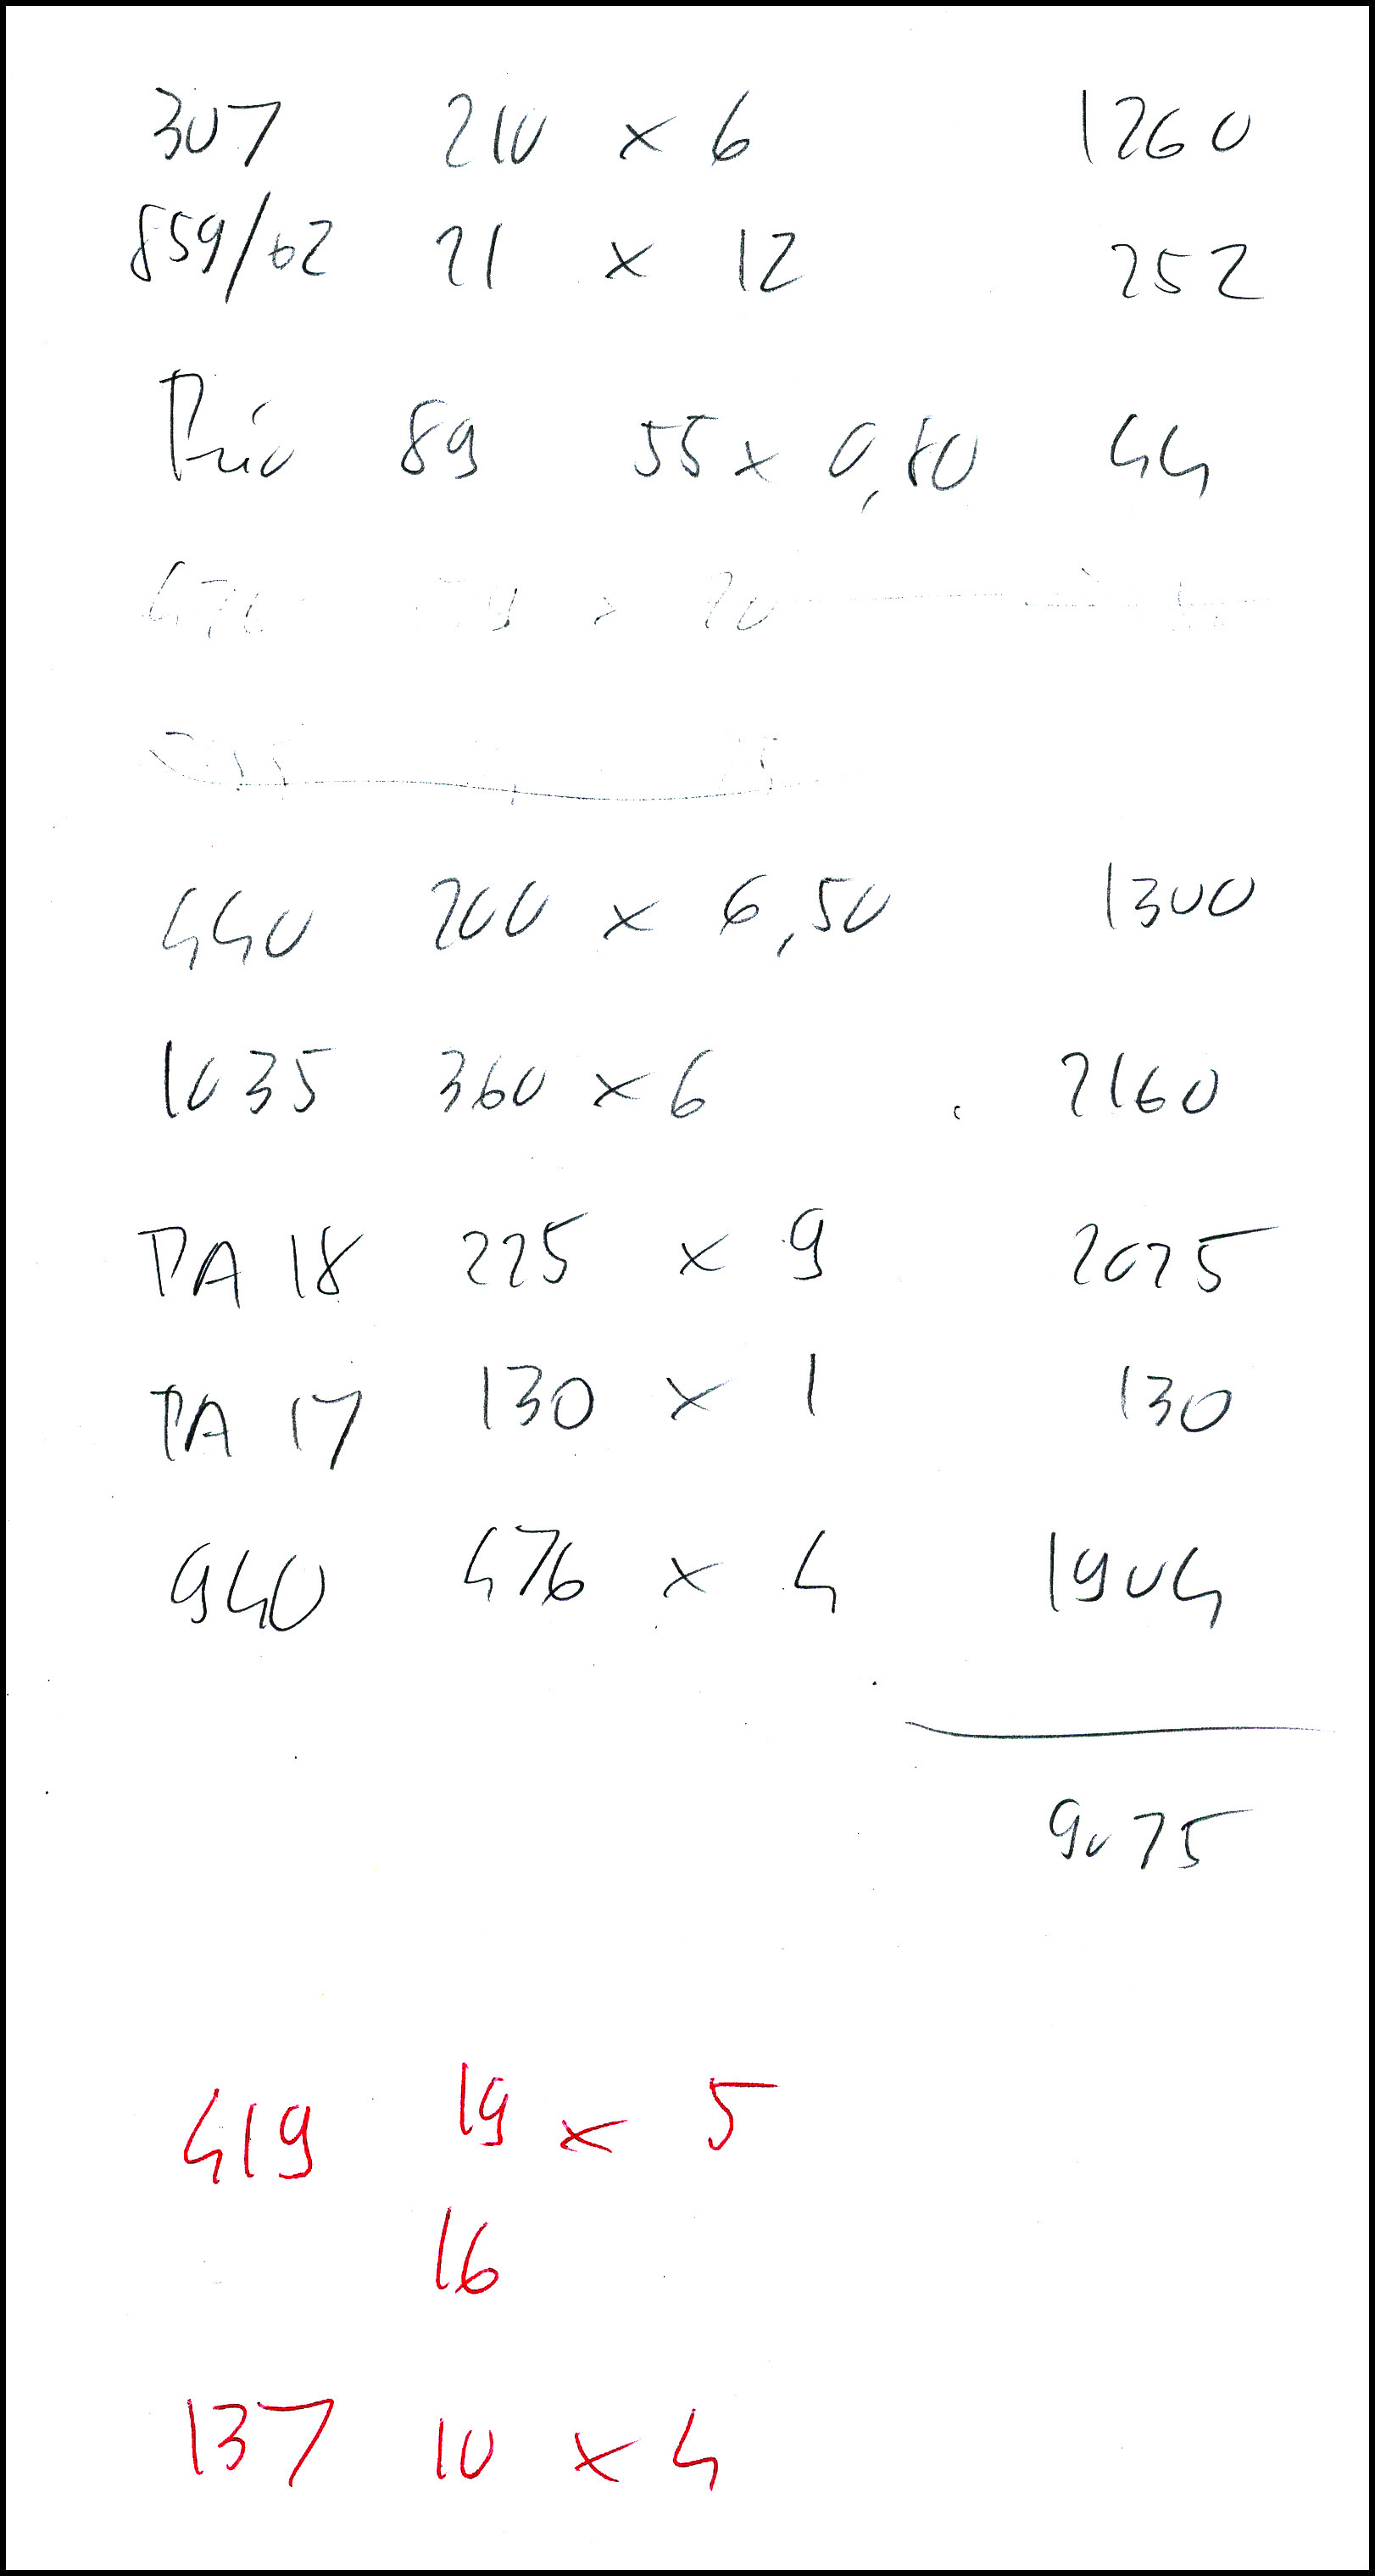 307 210 x 6 1260
859/62 21 x 12 252
89 55 x 0,80 44
x 20
440 200 x 6,50 1300
1035 360 x 6 2160
PA 18 225 x 9 2025
PA 17 130 x 1 130
940 476 x 4 1904
9075
419 19 x 5
16
137 10 x 4